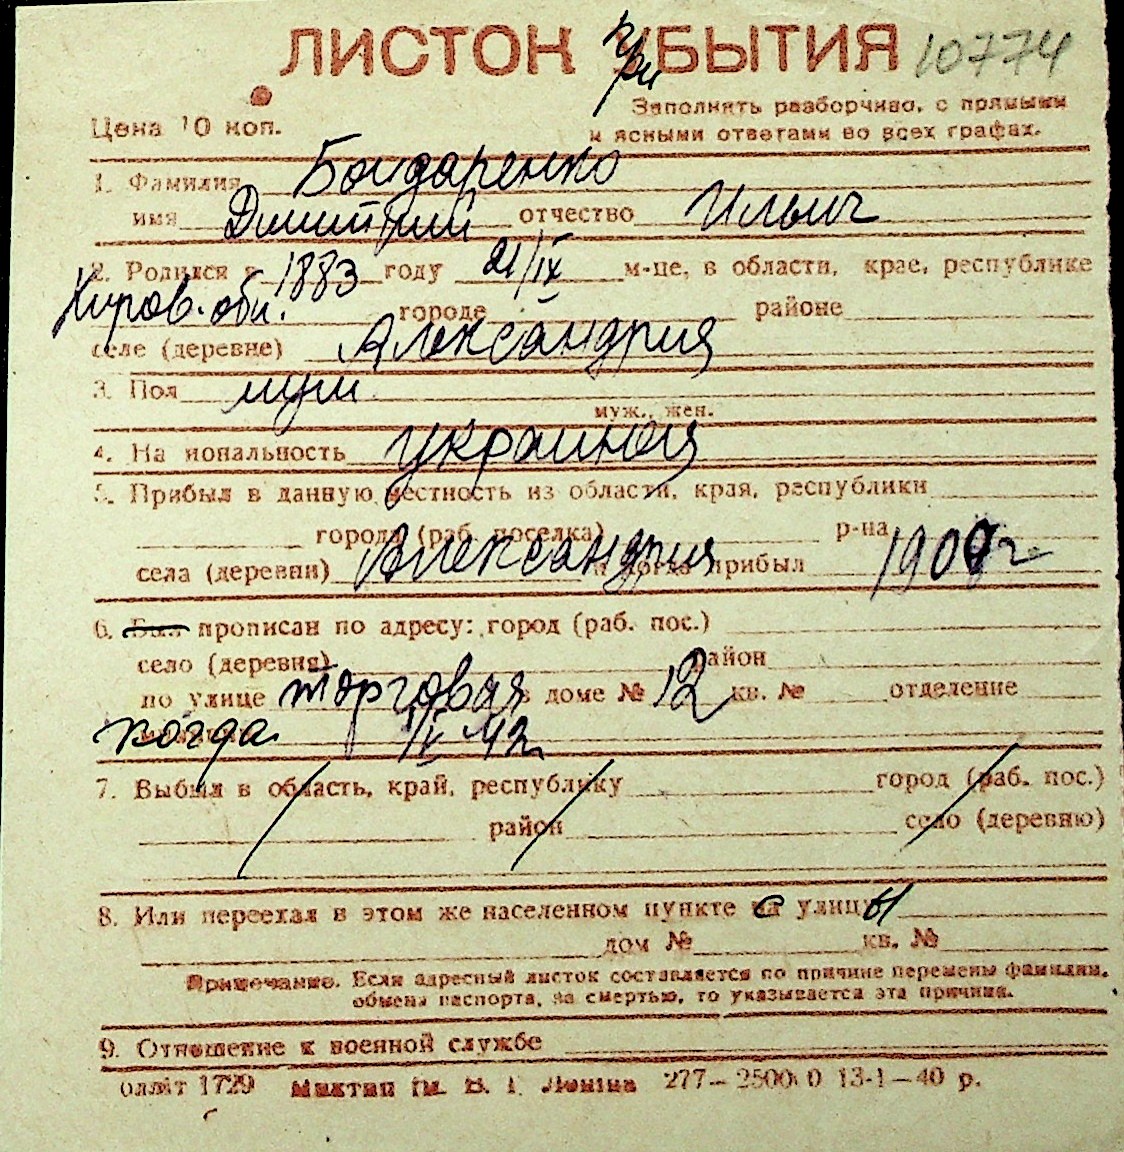 ЛИСТОК прибытия 10774
Заполнять разборчиво, с прямыми
Цена 10 коп. и ясными ответами во всех графах.
1. Фамилия Бондаренко
имя Димитрий отчество Ильич
2. Родился в 1883 году 21/IX м-це, в области, крае, республике
Киров. обл. городе районе
селе (деревне) Александрия
3. Пол муж
муж., жен.
4. Национальность украинец
5. Прибыл в данную местность из области, края, республики
города (раб. поселка) р-на
села (деревни) Александрия и когда прибыл 1900 г
6. Был прописан по адресу: город (раб. пос.)
село (деревня) район
по улице торговая в доме № 12 кв. № отделение
когда IV 42 г
7. Выбыл в область, край, республику город (раб. пос.)
район село (деревню)
8. Или переехал в этом же населенном пункте с улицы
дом № кв. №
Примечание. Если адресный листок составляется по причине перемены фамилии,
обмена паспорта, за смертью, то указывается эта причина.
9. Отношение к военной службе
1729 ім. В. І. Леніна 277— 13-1—40 р.